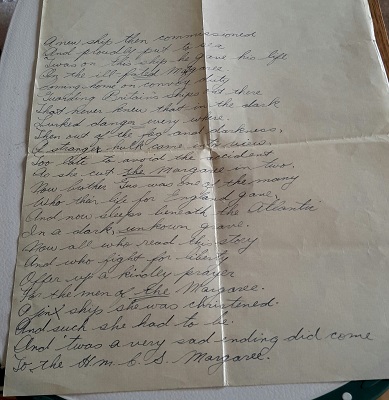 A new ship then commissioned
And proudly put to sea
Twas on this ship he gave his life
In the ill-fated Margaree
coming home on convoy duty
Guarding Britain's ships out there
That never knew that in the dark
Lurked danger every where.
Then out of the fog and darkness,
A stranger hulk came into view
Too late to avoid the accident
As she cut the Margaree in two.
Now brother Gus was one of the many
Who their life for England gave,
And now sleeps beneath the Atlantic
In a dark, unkown grave.
Now all who read this story
And who fight for liberty
Offer up a kindly prayer
For the men of the Margaree.
A jinx ship she was christened.
And such she had to be.
And 'twas a very sad ending did come
To the H.M.C.S. Margaree.